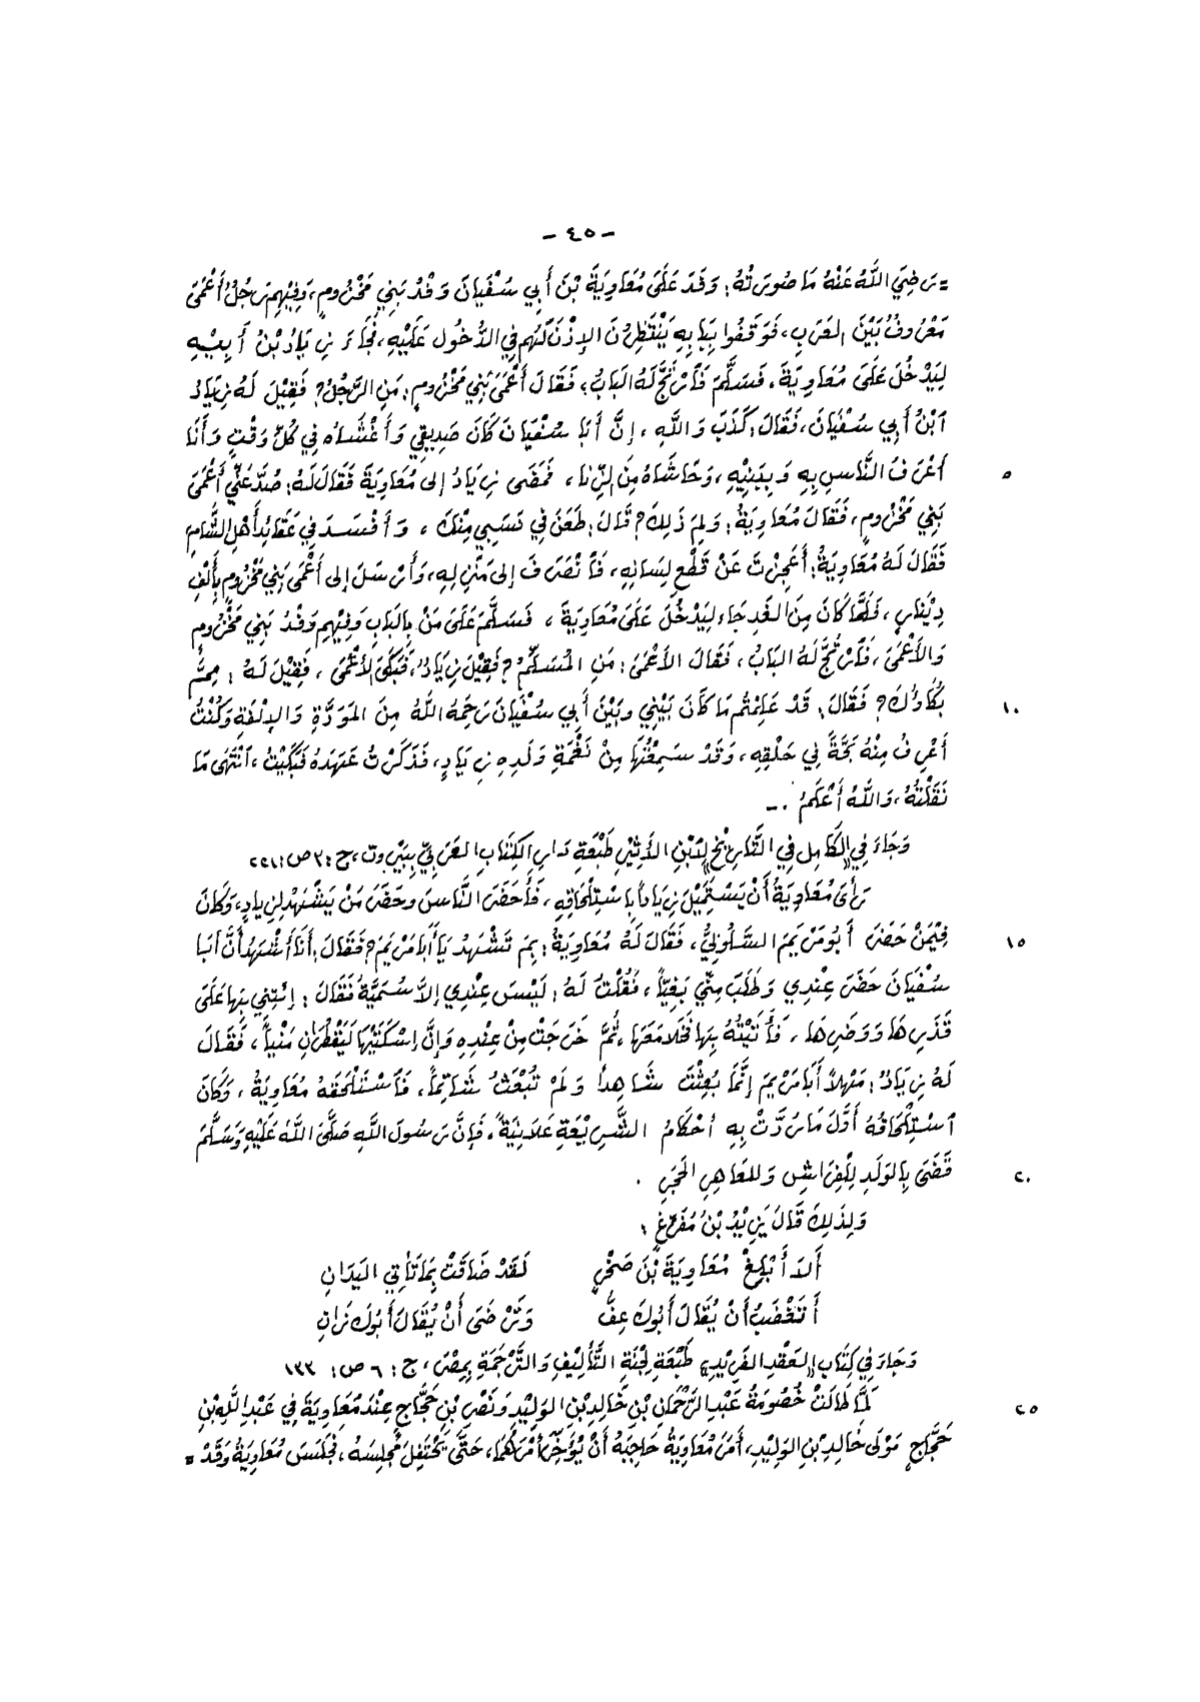 - ٤٥ -
= رَضِيَ اللَّهُ عَنْهُ مَا صُورَتُهُ: وَفَدَ عَلَى مُعَاوِيَةَ بْنَ أَبِي سُفْيَانَ وَفْدُ بَنِي مَخْزُومٍ، وَفِيهِم رَجُلٌ أَعْمَى
مَعْرُوفٌ بَيْنَ العَرَبِ، فَوَقَفُوا بِبَابِهِ يَنْتَظِرُونَ الإِذْنَ لَهُم فِي الدُّخُولِ عَلَيْهِ، فَجَاءَ زِيَادُ بْنُ أَبِيْهِ
لِيَدْخُلَ عَلَى مُعَاوِيَةَ، فَسَلَّمَ فَارْتَجَّ لَهُ البَابُ، فَقَالَ أَعْمَى بَنِي مَخْزُومٍ: مَنِ الرَّجُلُ؟ فَقِيْلَ لَهُ زِيَادُ
ابْنُ أَبِي سُفْيَانَ، فَقَالَ: كَذَبَ وَاللَّهِ، إِنَّ أَبَا سُفْيَانَ كَانَ صَدِيقِي وَأَغْشَاهُ فِي كُلِّ وَقْتٍ وَأَنَا
أَعْرَفُ النَّاسِ بِهِ وَبِبَنِيْهِ، وَحَاشَاهُ مِنَ الزِّنَا، فَمَضَى زِيَادُ إِلى مُعَاوِيَةَ فَقَالَ لَهُ: صُدَّ عَنِّي أَعْمَى ٥
بَنِي مَخْزُومٍ، فَقَالَ مُعَاوِيَةُ: وَلِمَ ذَلِكَ؟ قَالَ: طَعَنَ فِي نَسَبِي مِنْكَ، وَأَفْسَدَ فِي عَقَائِدِ أَهْلِ الشَّامِ
فَقَالَ لَهُ مُعَاوِيَةُ: أَعَجِزْتَ عَنْ قَطْعِ لِسَانِهِ، فَانْصَرَفَ إِلى مَنْزِلِهِ، وَأَرْسَلَ إِلى أَعْمَى بَنِي مَخْزُومٍ بِأَلْفِ
دِيْنَارٍ، فَلَمَّا كَانَ مِنَ الغَدِ جَاءَ لِيَدْخُلَ عَلَى مُعَاوِيَةَ، فَسَلَّمَ عَلَى مَنْ بِالبَابِ وَفِيْهِم وَفْدُ بَنِي مَخْزُومٍ
وَالأَعْمَى، فَارْتُجَّ لَهُ البَابُ، فَقَالَ الأَعْمَى: مَنِ المُسَلِّمُ؟ فَقِيْلَ زِيَادُ، فَبَكَى الأَعْمَى، فَقِيْلَ لَهُ: مِمَّ
بُكَاؤُكَ؟ فَقَالَ: قَدْ عَلِمْتُم مَا كَانَ بَيْنِي وَبَيْنَ أَبِي سُفْيَانَ رَحِمَهُ اللَّهُ مِنَ المَوَدَّةِ وَالإِلْفَةِ وَكُنْتُ ١٠
أَعْرِفُ مِنْهُ بَحَّةً فِي حَلْقِهِ، وَقَدْ سَمِعْتُهَا مِنْ نَغْمَةِ وَلَدِهِ زِيَادٍ، فَذَكَرْتُ عَهْدَهُ فَبَكَيْتُ، انْتَهَى مَا
نَقَلْتُهُ، وَاللَّهُ أَعْلَمُ. -
وَجَاءَ فِي "الكَامِلِ فِي التَّارِيْخِ" لِابْنِ الأَثِيْرِ طَبْعَةِ دَارِ الكِتَابِ العَرَبِيِّ بِبَيْرُوت، ج: ٣ ص: ٢٢١
رَأَى مُعَاوِيَةُ أَنْ يَسْتَمِيْلَ زِيَاداً بِاسْتِلْحَاقِهِ، فَأَحْضَرَ النَّاسَ وَحَضَرَ مَنْ يَشْهَدُ لِزِيَادٍ، وَكَانَ
فِيْمَنْ حَضَرَ أَبُو مَرْيَمَ السَّلُولِيُّ، فَقَالَ لَهُ مُعَاوِيَةُ: بِمَ تَشْهَدُ يَا أَبَا مَرْيَمَ؟ فَقَالَ: أَنَا أَشْهَدُ أَنَّ أَبَا ١٥
سُفْيَانَ حَضَرَ عِنْدِي وَطَلَبَ مِنِّي بَغِيّاً، فَقُلْتُ لَهُ: لَيْسَ عِنْدِي إِلاَّ سُمَيَّةُ فَقَالَ: إِئْتِنِي بِهَا عَلَى
قَذَرِهَا وَوَضَرِهَا، فَأَتَيْتُهُ بِهَا فَخَلَا مَعَهَا، ثُمَّ خَرَجَتْ مِنْ عِنْدِهِ وَإِنَّ إِسْكَتَيْهَا لَيَقْطُرَانِ مَنْيَاً، فَقَالَ
لَهُ زِيَادُ: مَهْلاً أَبَا مَرْيَمَ إِنَّمَا بُعِثْتَ شَاهِداً وَلَمْ تُبْعَثْ شَاتِماً، فَاسْتَلْحَقَهُ مُعَاوِيَةُ، وَكَانَ
اسْتِلْحَاقُهُ أَوَّلَ مَا رُدَّتْ بِهِ أَحْكَامُ الشَّرِيْعَةِ عَلَانِيَةً، فَإِنَّ رَسُولَ اللَّهِ صَلَّى اللَّهُ عَلَيْهِ وَسَلَّمَ
قَضَى بِالوَلَدِ لِلْفِرَاشِ وَلِلعَاهِرِ الحَجَرِ. ٢٠
وَلِذَلِكَ قَالَ يَزِيْدُ بْنُ مُفَرِّغٍ:
أَلاَ أَبْلِغْ مُعَاوِيَةَ بْنَ صَخْرٍ لَقَدْ ضَاقَتْ بِمَا تَأْتِي اليَدَانِ
أَتَغْضَبُ أَنْ يُقَالَ أَبُوكَ عِفٌّ وَتَرْضَى أَنْ يُقَالَ أَبُوكَ زَانِ
وَجَاءَ فِي كِتَابِ "العَقْدِ الفَرِيْدِ" طَبْعَةِ لِجْنَةِ التَّأْلِيْفِ وَالتَّرْجَمَةِ بِمِصْرَ، ج: ٦ ص: ١٣٣
لَمَّا طَالَتْ خُصُومَةُ عَبْدِ الرَّحْمَانِ بْنِ خَالِدِ بْنِ الوَلِيْدِ وَنَصْرِ بْنِ حَجَّاجٍ عِنْدَ مُعَاوِيَةَ فِي عَبْدِ اللَّهِ بْنِ ٢٥
حَجَّاجٍ مَوْلَى خَالِدِ بْنِ الوَلِيْدِ، أَمَرَ مُعَاوِيَةُ حَاجِبَهُ أَنْ يُؤَخِّرَ أَمْرَهُمَا، حَتَّى يَحْتَفِلَ مَجْلِسَهُ، فَجَلَسَ مُعَاوِيَةُ وَقَدْ =